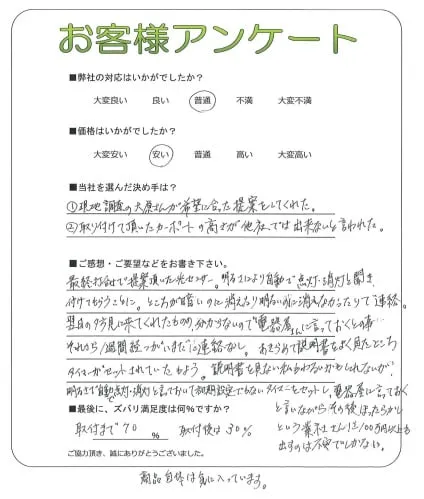 お客様アンケート
■弊社の対応はいかがでしたか?
大変良い 良い 普通 不満 大変不満
■価格はいかがでしたか?
大変安い 安い 普通 高い 大変高い
■当社を選んだ決め手は?
①現地調査の大原さんが希望に合った提案をしてくれた。
②取り付けて頂いたカーポートの高さが他社では出来ないと言われた。
■ご感想・ご要望などをお書き下さい。
最終打合で提案頂いた光センサー。明るさにより自動で点灯・消灯と聞き、
付けてもらうことに。ところが暗いのに消えたり明るいのに消えなかったりで連絡。
翌日の夕方見に来てくれたものの、分からないので“電器屋さんに言っておくとの事…
それから1週間経つがいまだに連絡なし。あきらめて説明書をよく見たところ
タイマーがセットされていたもよう。説明書を見ない私もわるいかもしれないが、
明るさで自動点灯・消灯と言っておいて初期設定でもないタイマーをセットし、電器屋に言っておく
と言いながらその後ほったらかし
という業社さんに100万円以上も
出すのは不安でしかない。
■最後に、ズバリ満足度は何%ですか?
取付まで70 % 取付後は30%
ご協力頂き、誠にありがとうございました。
商品自体は気に入っています。